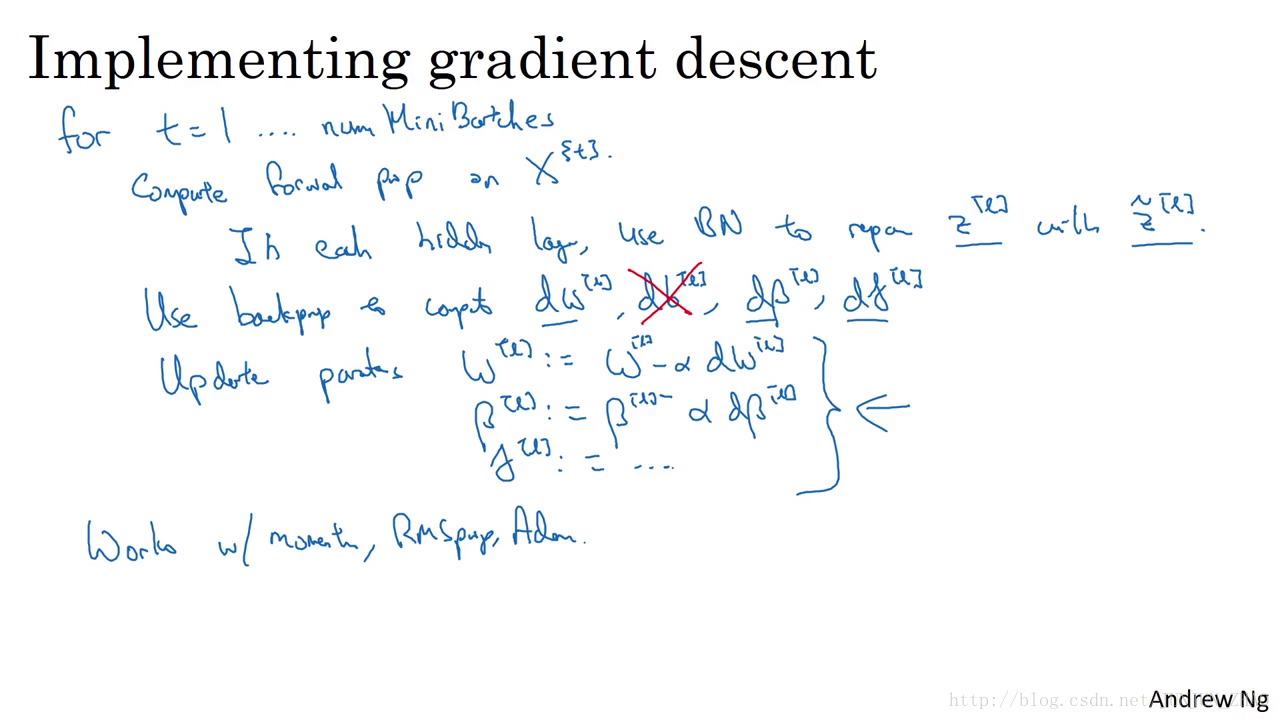 Implementing gradient descent
for t = 1 .... numMiniBatches
Compute forward prop on X^{t}.
In each hidden layer, use BN to replace z^[l] with z̃^[l].
Use backprop to compute dW^[l], db^[l], dβ^[l], dγ^[l]
Update parameters W^[l] := W^[l] - α dW^[l]
β^[l] := β^[l] - α dβ^[l]
γ^[l] := ....
Works w/ momentum, RMSprop, Adam.
http://blog.csdn.net/
Andrew Ng